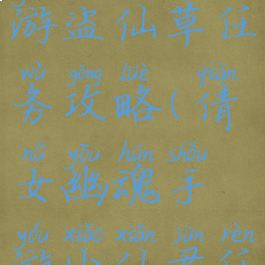 游盗仙草任
wù gōng lüè qiàn
务攻略(倩
nǚ yōu hún shǒu
女幽魂手
yóu xiǎo xiān sān rèn